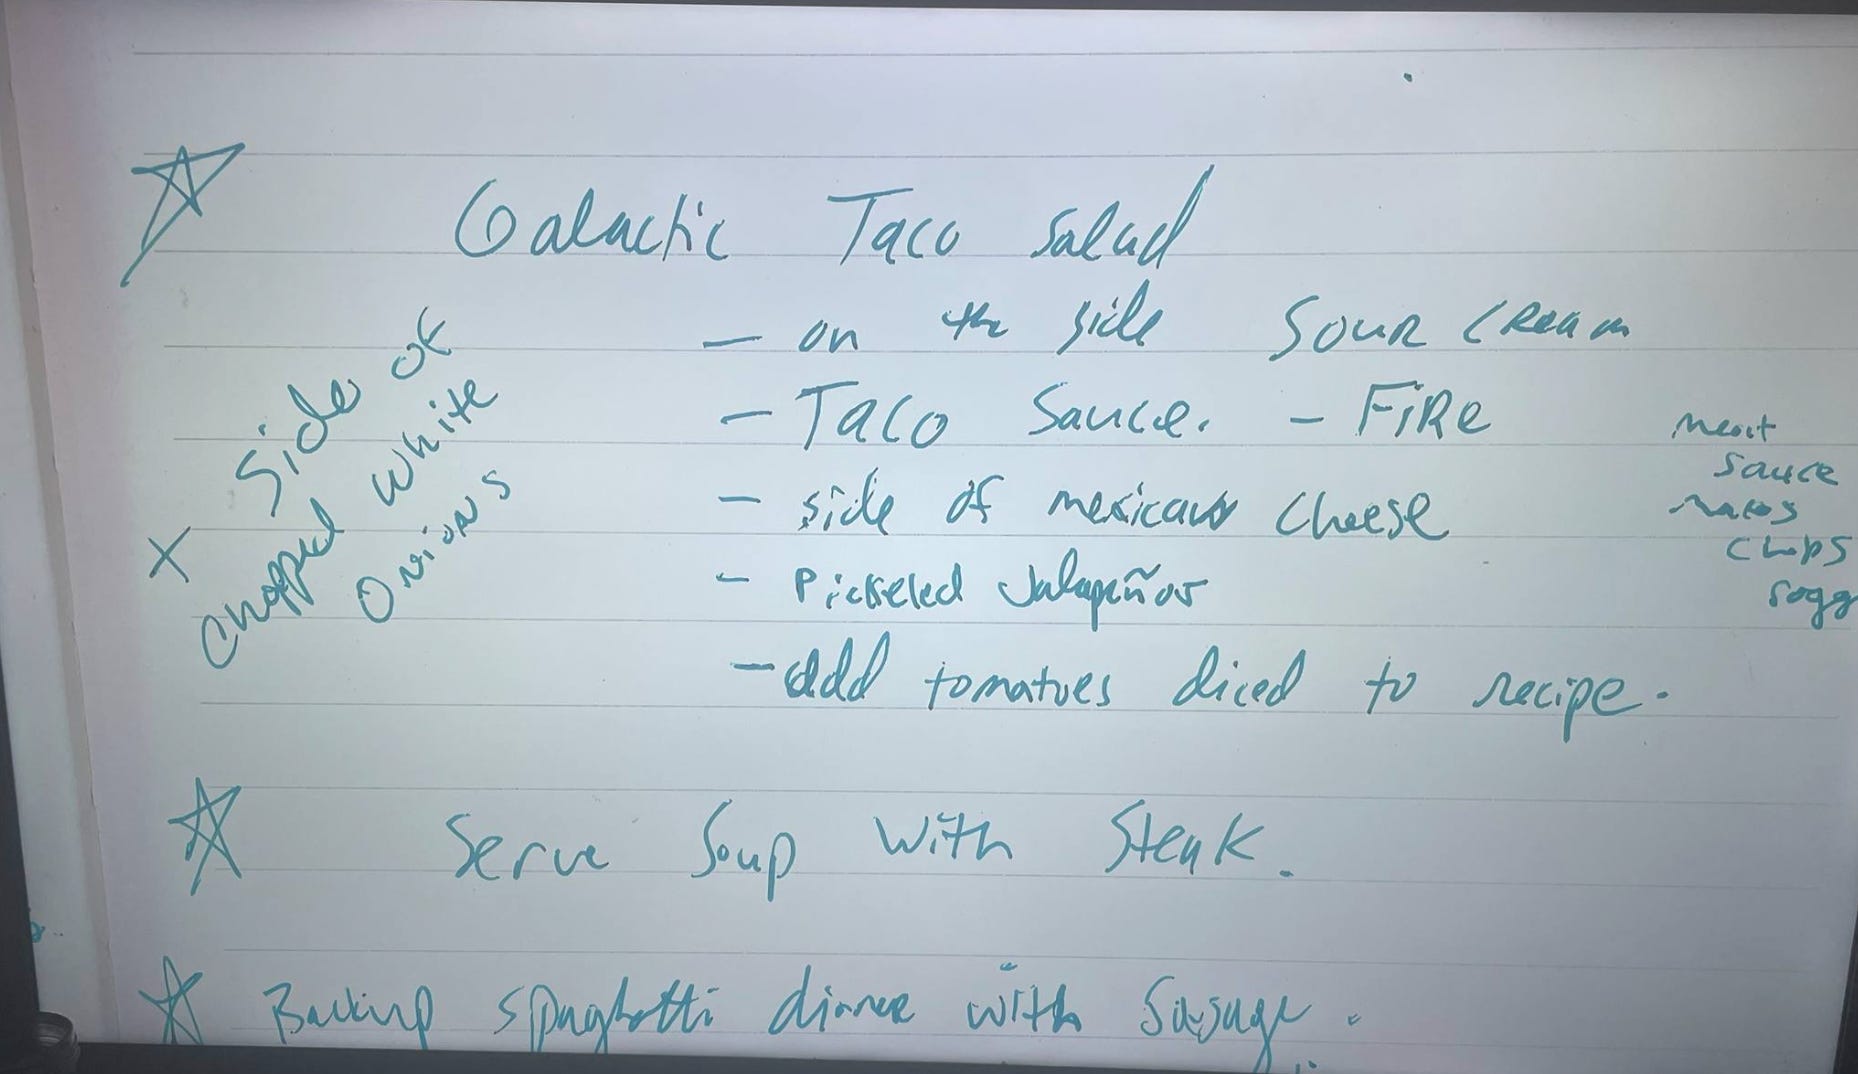 Galactic Taco Salad
- on the side Sour Cream
- Taco Sauce. - FiRe
- side of mexican Cheese
- Pickeled Jalapeños
- add tomatoes diced to recipe.
+ Side of
Chopped White
Onions
Meat
Sauce
makes
Chips
sogg
Serve Soup with Steak.
Backup Spaghetti dinner with Sausage.